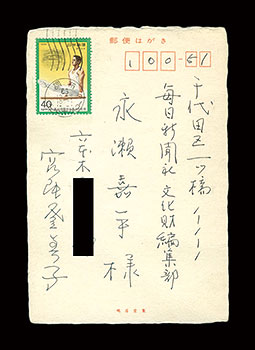 郵便はがき
100-51
千代田区一ツ橋一ノ一ノ一
毎日新聞社 文化財編集部
永瀬嘉平様
40
宮尾登美子